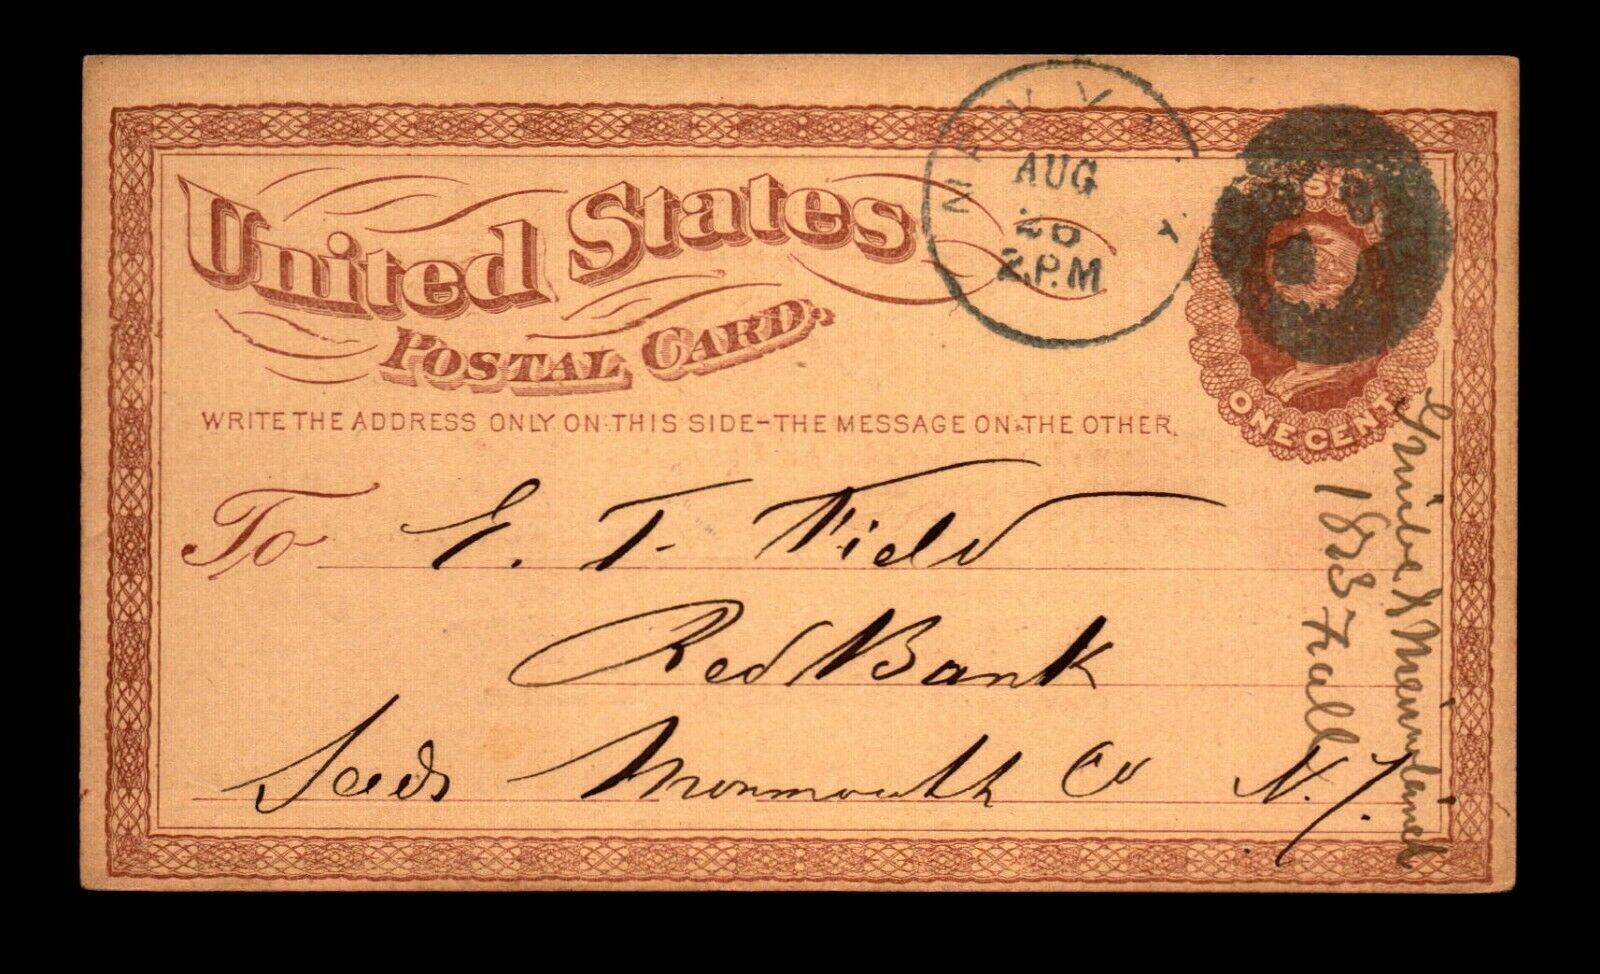 United States
POSTAL CARD.
WRITE THE ADDRESS ONLY ON THIS SIDE-THE MESSAGE ON THE OTHER.
AUG
2 P.M
U.S.
ONE CENT
To E. T. Field
Red Bank
Seeds Monmouth Co N.J.
Fall